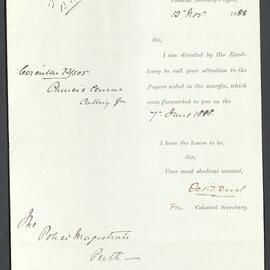 Colonial Secretary's Office,
12 Nov. 1888
Sir,
I am directed by His Excel-
lency to call your attention to the
Papers noted in the margin, which
were forwarded to you on the
7th June 1888.
Circular
Chinese Census
I have the honor to be,
Sir,
Your most obedient servant,
For Colonial Secretary.
The
Police Magistrate
Perth